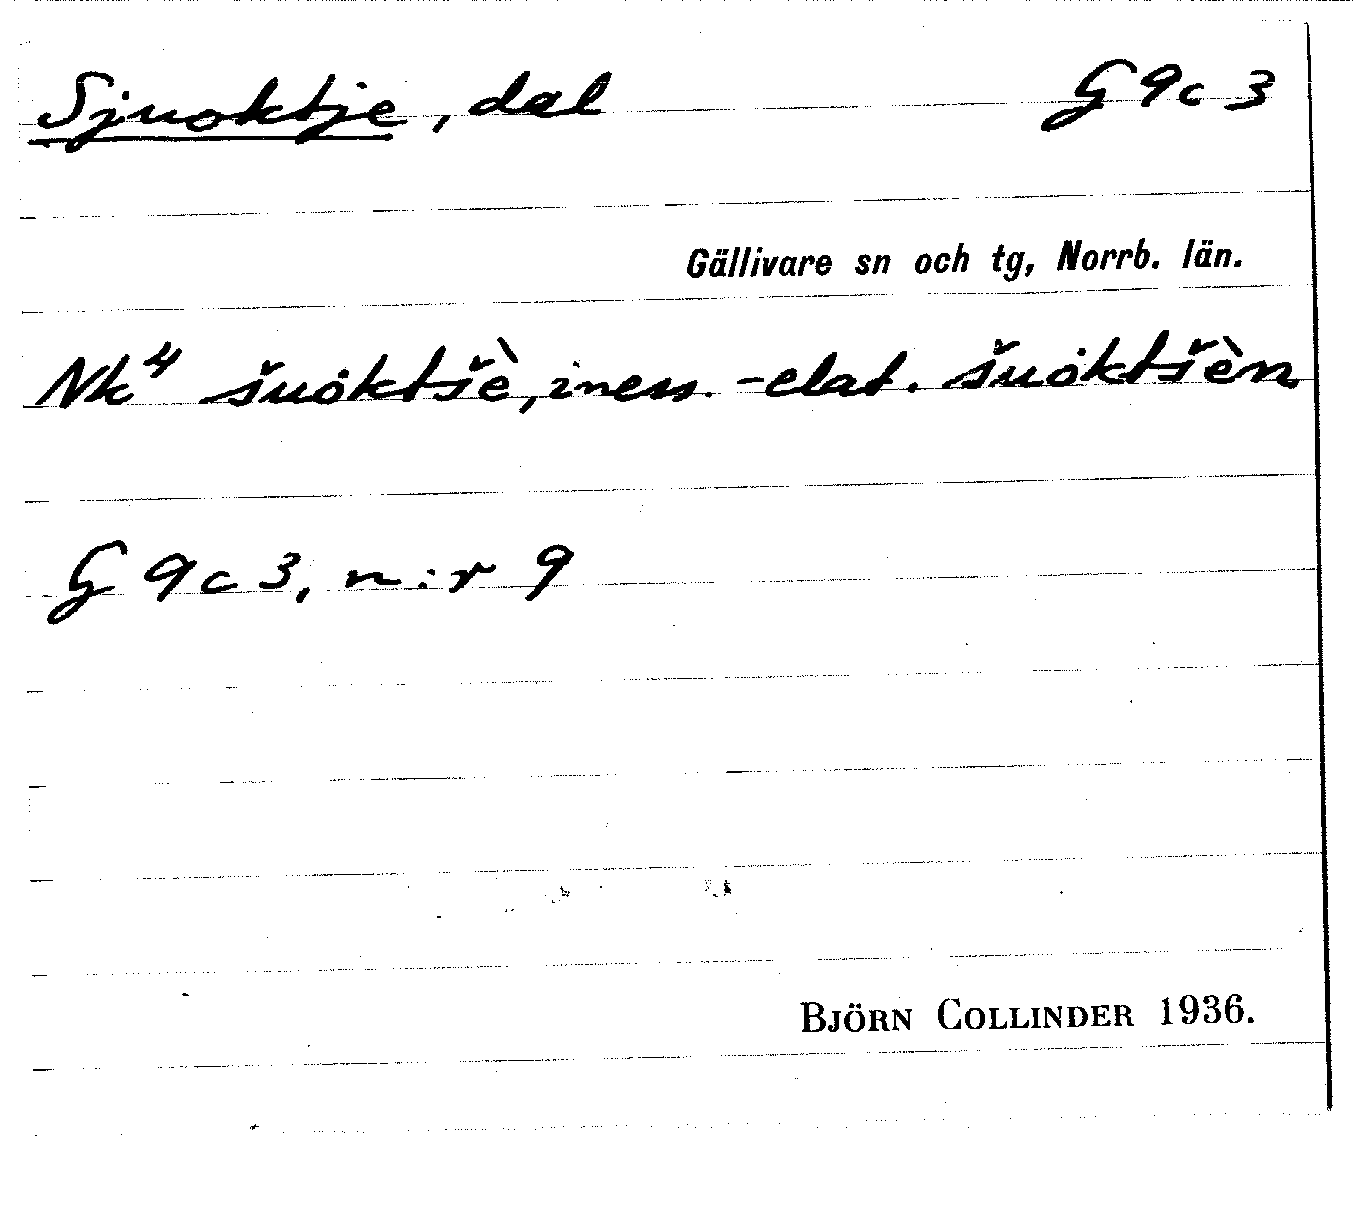 Sjuoktje, dal G 9c 3
Gällivare sn och tg, Norrb. län.
Nk⁴ šuȯktšè, iness. -elat. šuȯktšèn
G 9c 3, n:r 9
BJÖRN COLLINDER 1936.